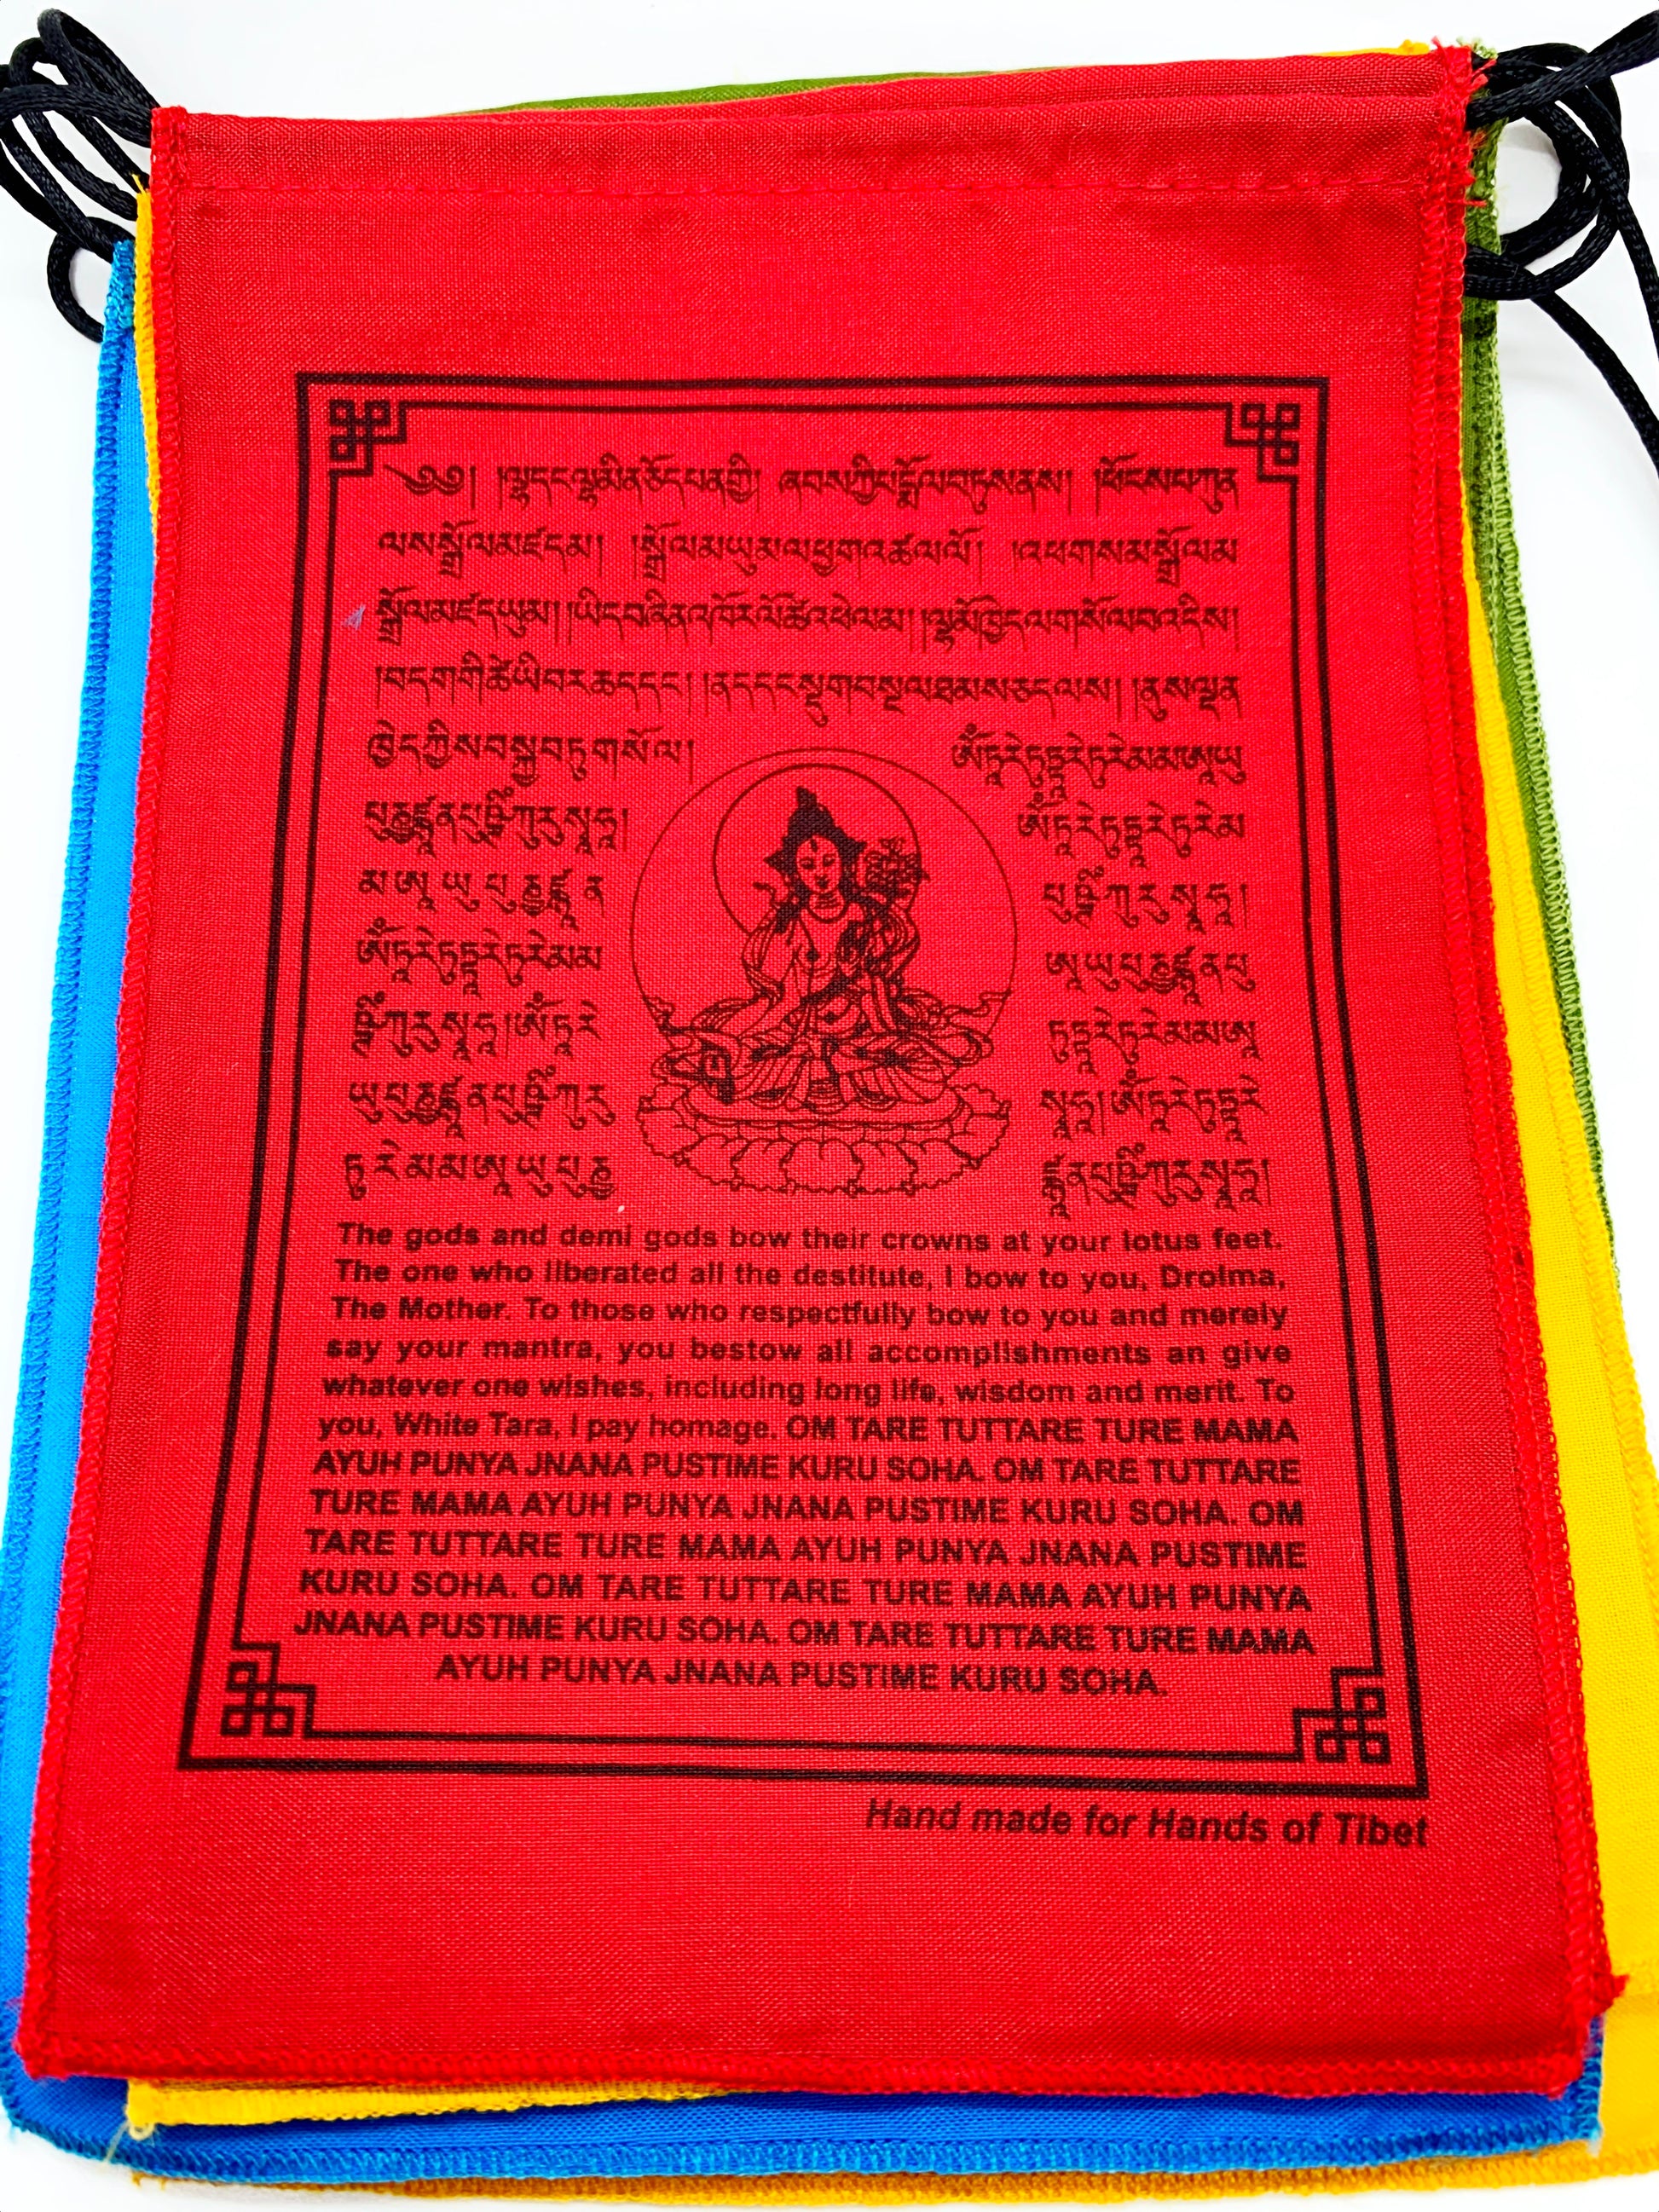 ༄༅། །ལྷ་དང་ལྷ་མིན་ཅོད་པན་གྱི། ཞབས་ཀྱི་པདྨོ་ལ་བཏུས་ནས། །ཕོངས་པ་ཀུན་
ལས་སྒྲོལ་མཛད་མ། །སྒྲོལ་མ་ཡུམ་ལ་ཕྱག་འཚལ་ལོ། །འཕགས་མ་སྒྲོལ་མ་
སྒྲོལ་མཛད་ཡུམ། །ཡིད་བཞིན་འཁོར་ལོ་ཚེ་འཕེལ་མ། །ལྷ་མོ་ཁྱེད་ལ་གསོལ་བ་འདེབས།
།བདག་གི་ཚེ་ཡི་བར་ཆད་དང་། །ནད་དང་སྡུག་བསྔལ་ཐམས་ཅད་ལས། །ནུས་ལྡན་
ཁྱེད་ཀྱིས་བསྐྱབ་ཏུ་གསོལ། ཨོཾ་ཏཱ་རེ་ཏུཏྟཱ་རེ་ཏུ་རེ་མ་མ་ཨཱ་ཡུ་
པུ་ཎྱེ་ཛྙཱ་ན་པུཥྚིཾ་ཀུ་རུ་སྭཱ་ཧཱ། ཨོཾ་ཏཱ་རེ་ཏུཏྟཱ་རེ་ཏུ་རེ་མ་
མ་ཨཱ་ཡུ་པུ་ཎྱེ་ཛྙཱ་ན་ པུཥྚིཾ་ཀུ་རུ་སྭཱ་ཧཱ།
ཨོཾ་ཏཱ་རེ་ཏུཏྟཱ་རེ་ཏུ་རེ་མ་མ་ ཨཱ་ཡུ་པུ་ཎྱེ་ཛྙཱ་ན་པུ་
ཥྚིཾ་ཀུ་རུ་སྭཱ་ཧཱ། ཨོཾ་ཏཱ་རེ་ ཏུཏྟཱ་རེ་ཏུ་རེ་མ་མ་ཨཱ་
ཡུ་པུ་ཎྱེ་ཛྙཱ་ན་པུཥྚིཾ་ཀུ་རུ་ སྭཱ་ཧཱ། ཨོཾ་ཏཱ་རེ་ཏུཏྟཱ་རེ་
ཏུ་རེ་མ་མ་ཨཱ་ཡུ་པུ་ཎྱེ་ ཛྙཱ་ན་པུཥྚིཾ་ཀུ་རུ་སྭཱ་ཧཱ།
The gods and demi gods bow their crowns at your lotus feet.
The one who liberated all the destitute, I bow to you, Drolma,
The Mother. To those who respectfully bow to you and merely
say your mantra, you bestow all accomplishments an give
whatever one wishes, including long life, wisdom and merit. To
you, White Tara, I pay homage. OM TARE TUTTARE TURE MAMA
AYUH PUNYA JNANA PUSTIME KURU SOHA. OM TARE TUTTARE
TURE MAMA AYUH PUNYA JNANA PUSTIME KURU SOHA. OM
TARE TUTTARE TURE MAMA AYUH PUNYA JNANA PUSTIME
KURU SOHA. OM TARE TUTTARE TURE MAMA AYUH PUNYA
JNANA PUSTIME KURU SOHA. OM TARE TUTTARE TURE MAMA
AYUH PUNYA JNANA PUSTIME KURU SOHA.
Hand made for Hands of Tibet